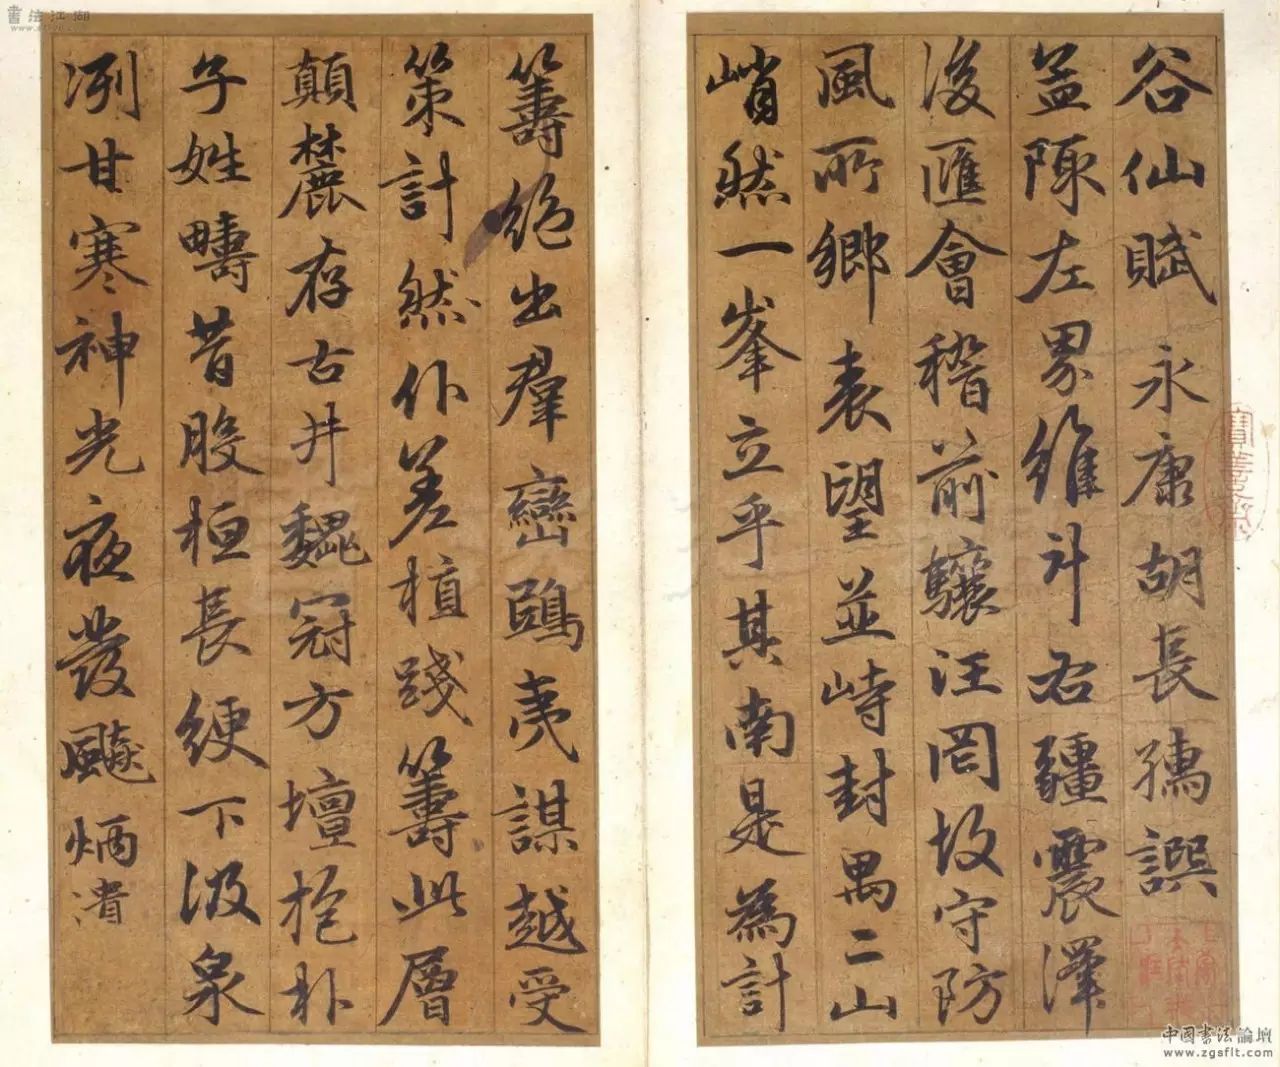 谷仙賦 永康胡長孺譔
盖陳左界維斗右疆震澤
後匯會稽前驤汪罔攷守防
風所鄉表望並峙封禺二山
峭然一峯立乎其南是為計
籌絶出羣巒鴟夷謀越受
策計然仆差植踐籌此層
顛麓存古井甃冠方壇抱朴
子姓疇昔股桓長綆下汲泉
冽甘寒神光夜發飈炳潰
書法江湖
中国书法論壇
www.zgsflt.com